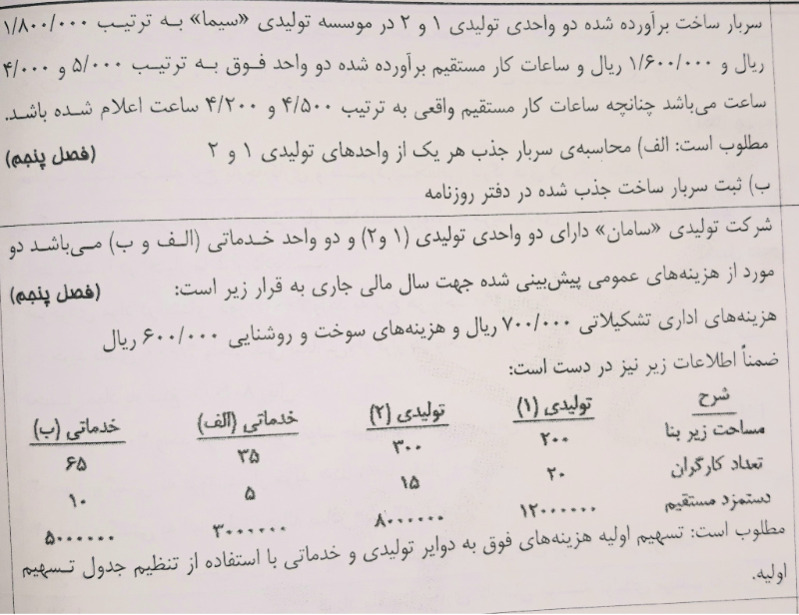 سربار ساخت برآورده شده دو واحدی تولیدی ۱ و ۲ در موسسه تولیدی «سیما» به ترتیب ۱/۸۰۰/۰۰۰
ریال و ۱/۶۰۰/۰۰۰ ریال و ساعات کار مستقیم برآورده شده دو واحد فوق به ترتیب ۵/۰۰۰ و ۴/۰۰۰
ساعت می‌باشد چنانچه ساعات کار مستقیم واقعی به ترتیب ۴/۵۰۰ و ۴/۲۰۰ ساعت اعلام شده باشد.
مطلوب است: الف) محاسبه‌ی سربار جذب هر یک از واحدهای تولیدی ۱ و ۲ (فصل پنجم)
ب) ثبت سربار ساخت جذب شده در دفتر روزنامه
شرکت تولیدی «سامان» دارای دو واحدی تولیدی (۱ و۲) و دو واحد خدماتی (الف و ب) می‌باشد دو
مورد از هزینه‌های عمومی پیش‌بینی شده جهت سال مالی جاری به قرار زیر است: (فصل پنجم)
هزینه‌های اداری تشکیلاتی ۷۰۰/۰۰۰ ریال و هزینه‌های سوخت و روشنایی ۶۰۰/۰۰۰ ریال
ضمناً اطلاعات زیر نیز در دست است:
شرح تولیدی (۱) تولیدی (۲) خدماتی (الف) خدماتی (ب)
مساحت زیر بنا ۲۰۰ ۳۰۰ ۳۵ ۶۵
تعداد کارگران ۲۰ ۱۵ ۵ ۱۰
دستمزد مستقیم ۱۲۰۰۰۰۰۰ ۸۰۰۰۰۰۰ ۳۰۰۰۰۰۰ ۵۰۰۰۰۰۰
مطلوب است: تسهیم اولیه هزینه‌های فوق به دوایر تولیدی و خدماتی با استفاده از تنظیم جدول تسهیم
اولیه.